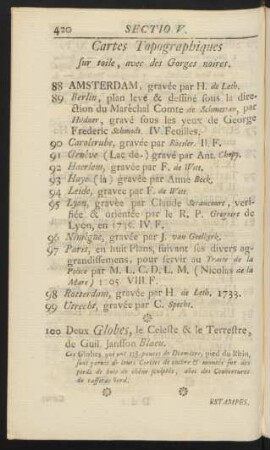 420 SECTIO V.
Cartes Topographiques
sur toile, avec des Gorges noires.
88 AMSTERDAM, gravée par H. de Leth.
89 Berlin, plan levé & dessiné sous la dire-
ction du Maréchal Comte de Schmettau, par
Hildner, gravé sous les yeux de George
Frederic Schmidt. IV. Feuilles.
90 Carolsruhe, gravée par Rösler. II. F.
91 Genéve (Lac de-) gravé par Ant. Chopy.
92 Haerlem, gravée par F. de Wit.
93 Haye (la) gravée par Anna Beek.
94 Leide, gravée par F. de Wit.
95 Lyon, gravée par Claude Seraucourt, veri-
fiée & orientée par le R. P. Gregoire de
Lyon, en 1735. IV. F.
96 Nimégue, gravée par J. van Geelkerk.
97 Paris, en huit Plans, suivant ses divers ag-
grandissemens, pour servir au Traité de la
Police par M. L. C. D. L. M. (Nicolas de
la Mare) 1705 VIII. F.
98 Rotterdam, gravée par H. de Leth. 1733.
99 Utrecht, gravée par C. Specht.
100 Deux Globes, le Celeste & le Terrestre,
de Guil. Jansson Blaeu.
Ces Globes qui ont pouces de Diametre, pied du Rhin,
sont garnis de leurs Cercles de cuivre & montés sur des
pieds de bois de chêne sculptés, avec des Couvertures
de taffetas verd.
ESTAMPES.